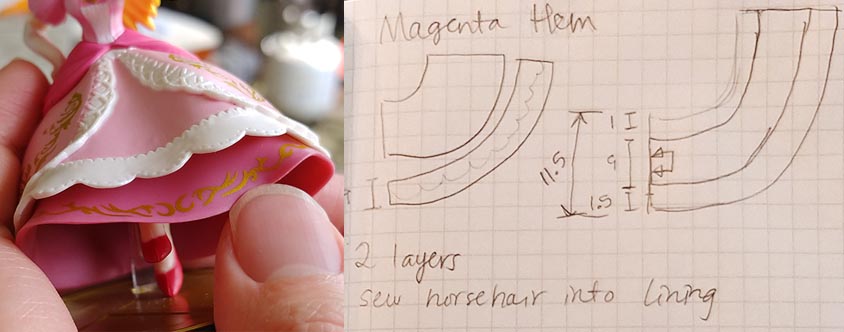 Magenta Hem
11.5
1
9
1.5
2 layers
sew horsehair into lining